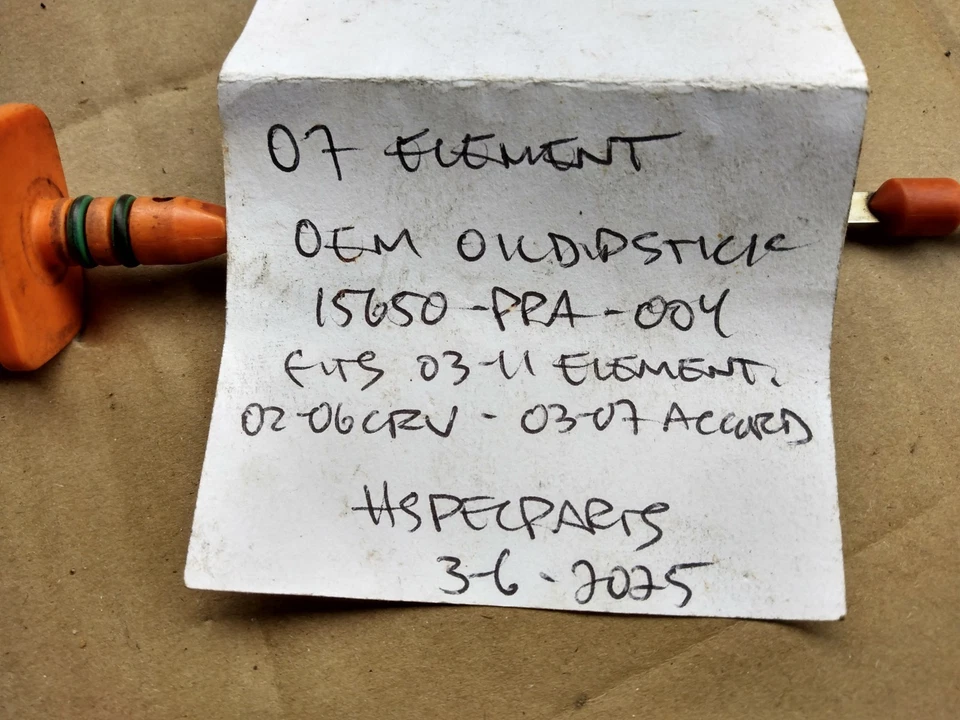 07 ELEMENT
OEM OILDIPSTICK
15650-PRA-004
FITS 03-11 ELEMENT.
02-06 CRV - 03-07 ACCORD
HSPECPARTS
3-6-2025